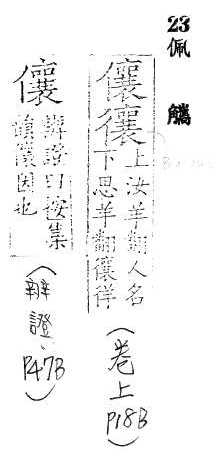 23
佩觿
儴
上汝羊翻人名
徉
下思羊翻儴徉
(卷上
P18B)
儴
辨證曰按集
韻儴因也
(辨證、
P47B)